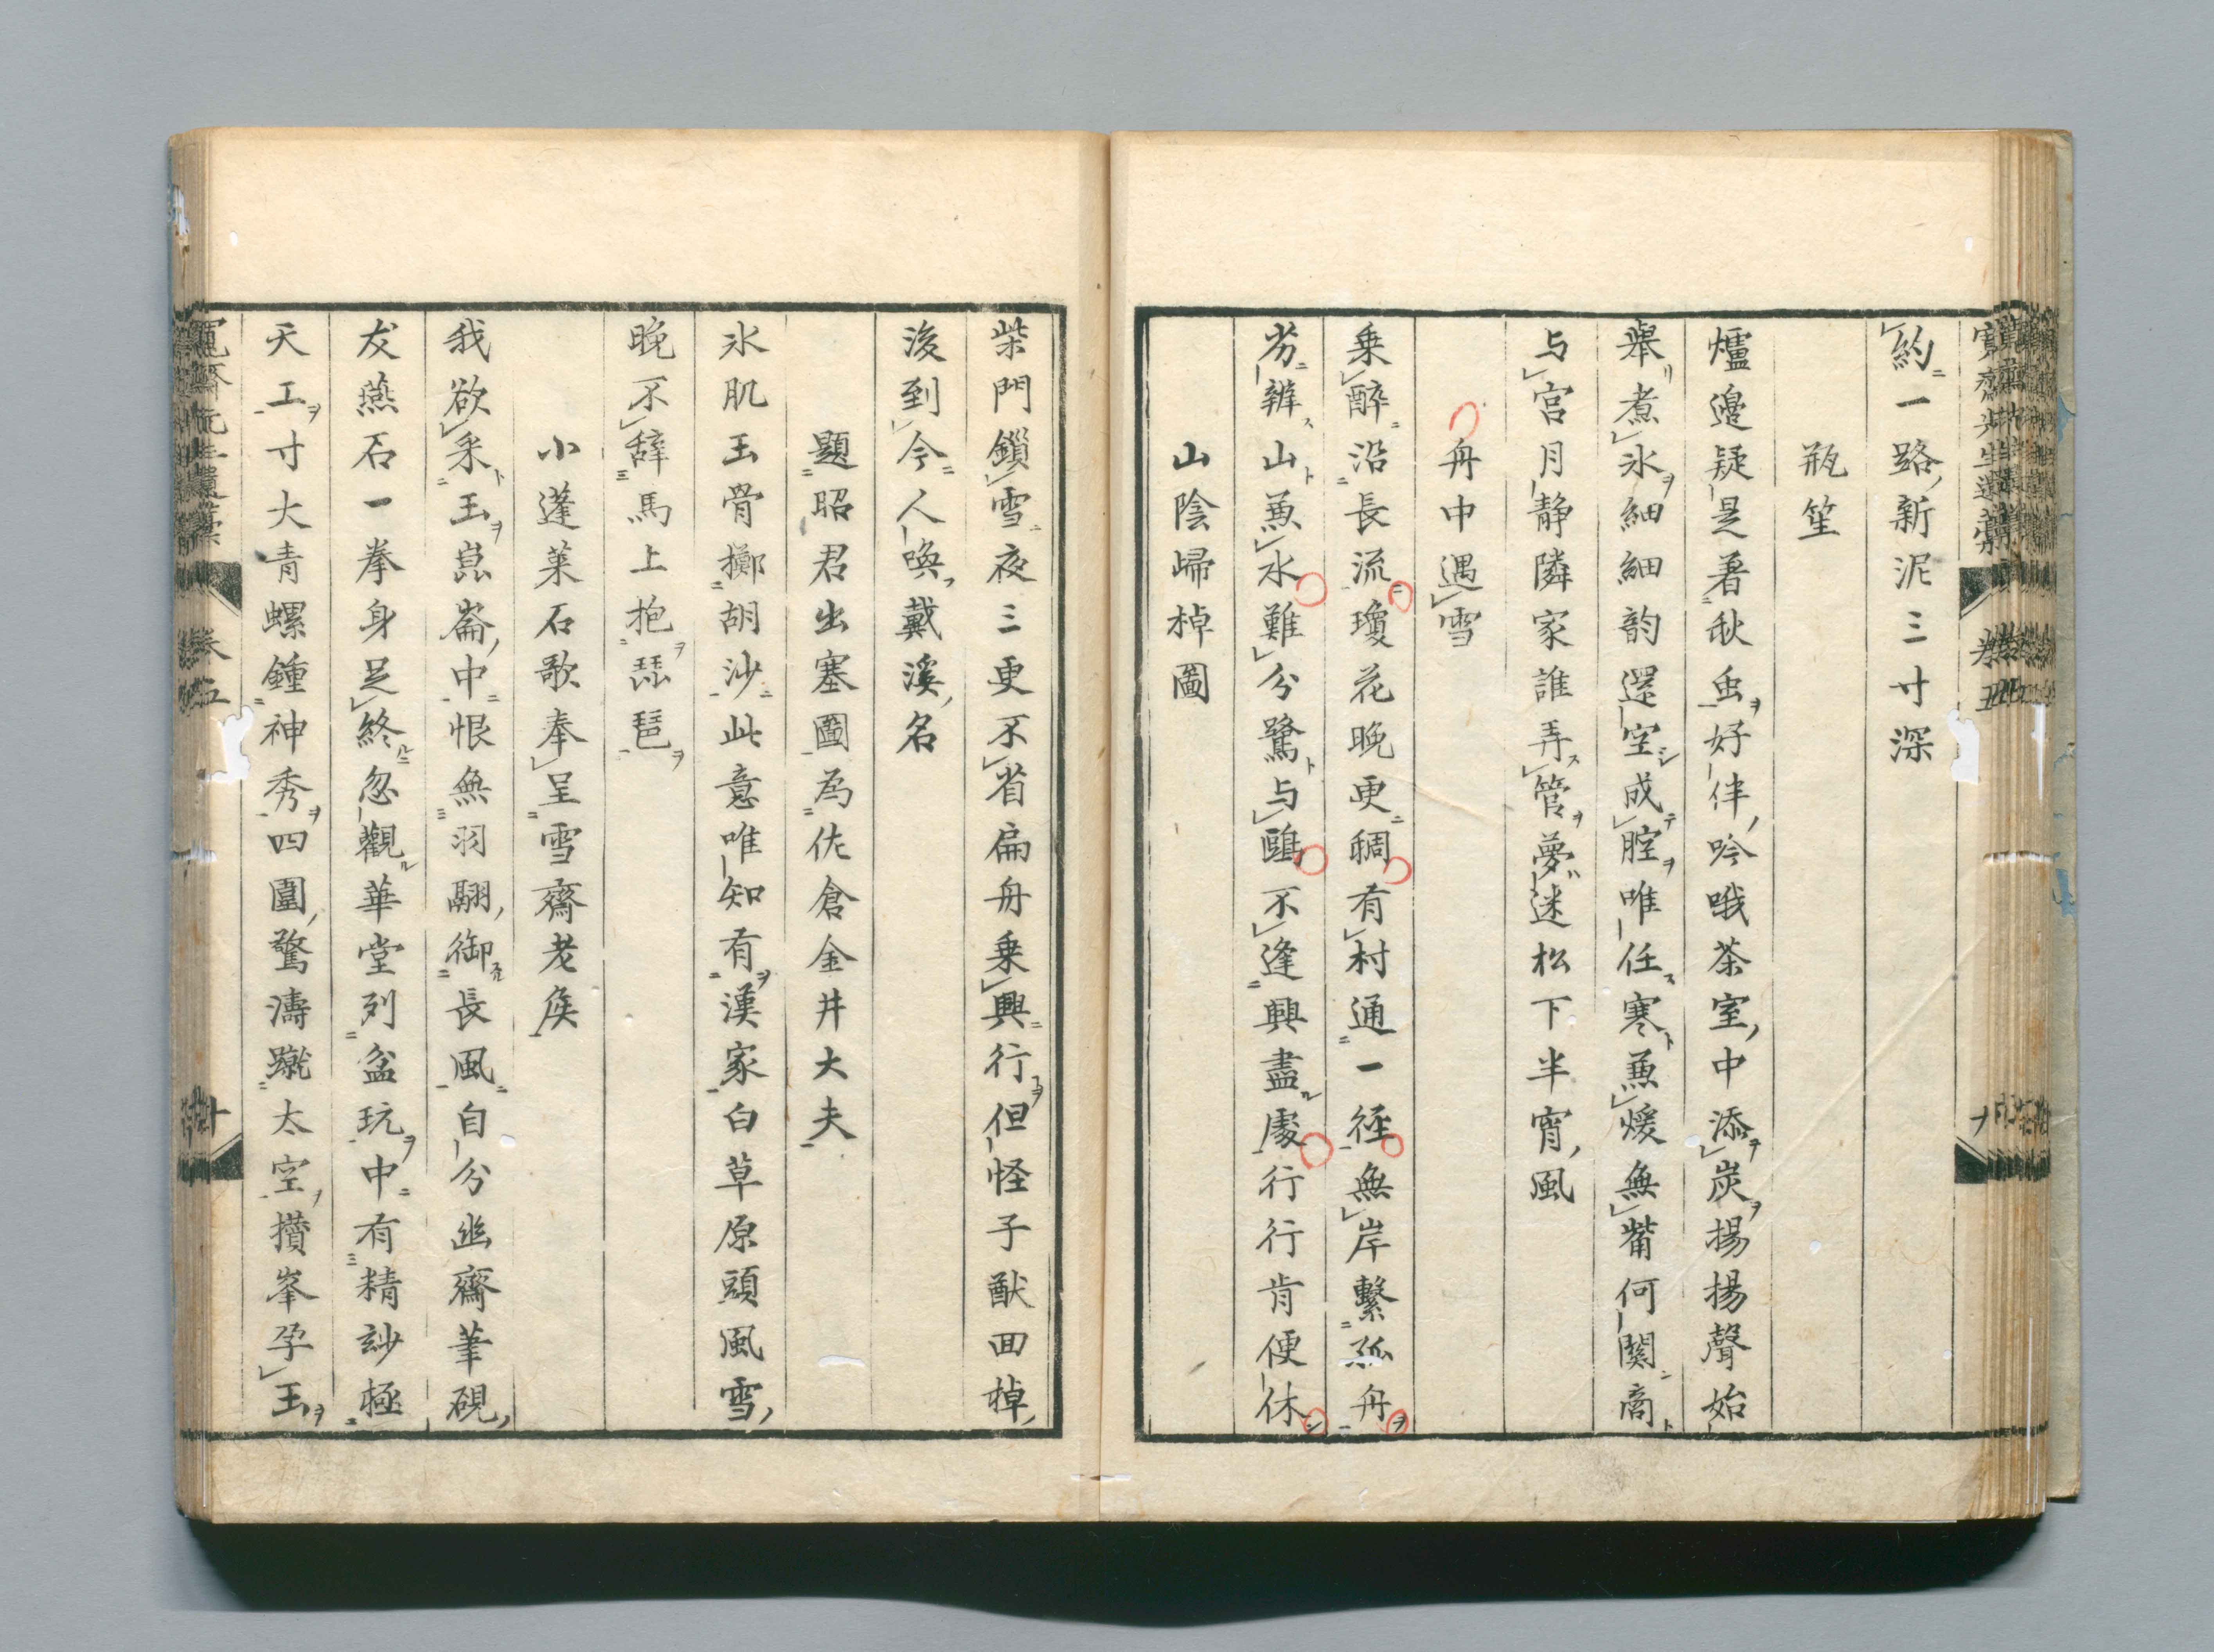 約一路新泥三寸深
瓶笙
爐邊疑是著秋虫好伴吟哦茶室中添炭揚揚聲始
擧煮氷細細韵還空成腔唯任寒兼煖無觜何關商
与宮月靜隣家誰弄管夢迷松下半宵風
舟中遇雪
乗醉沿長流瓊花晚更稠有村通一徑無岸繫孤舟
劣辨山兼水難分鷺与鷗不逢興盡處行行肯便休
山陰歸棹圖
柴門鎖雪夜三更不省扁舟乗興行但怪子猷回棹
後到今人喚戴溪名
題昭君出塞圖為佐倉金井大夫
氷肌玉骨擲胡沙此意唯知有漢家白草原頭風雪
晚不辭馬上抱琵琶
小蓬萊石歌奉呈雪齋老矦
我欲采玉崑崙中恨無羽翮御長風自分幽齋筆硯
友燕石一拳身足終忽觀華堂列盆玩中有精玅極
天工寸大青螺鍾神秀四圍驚濤蹴太空攢峯孕玉
卷五
十